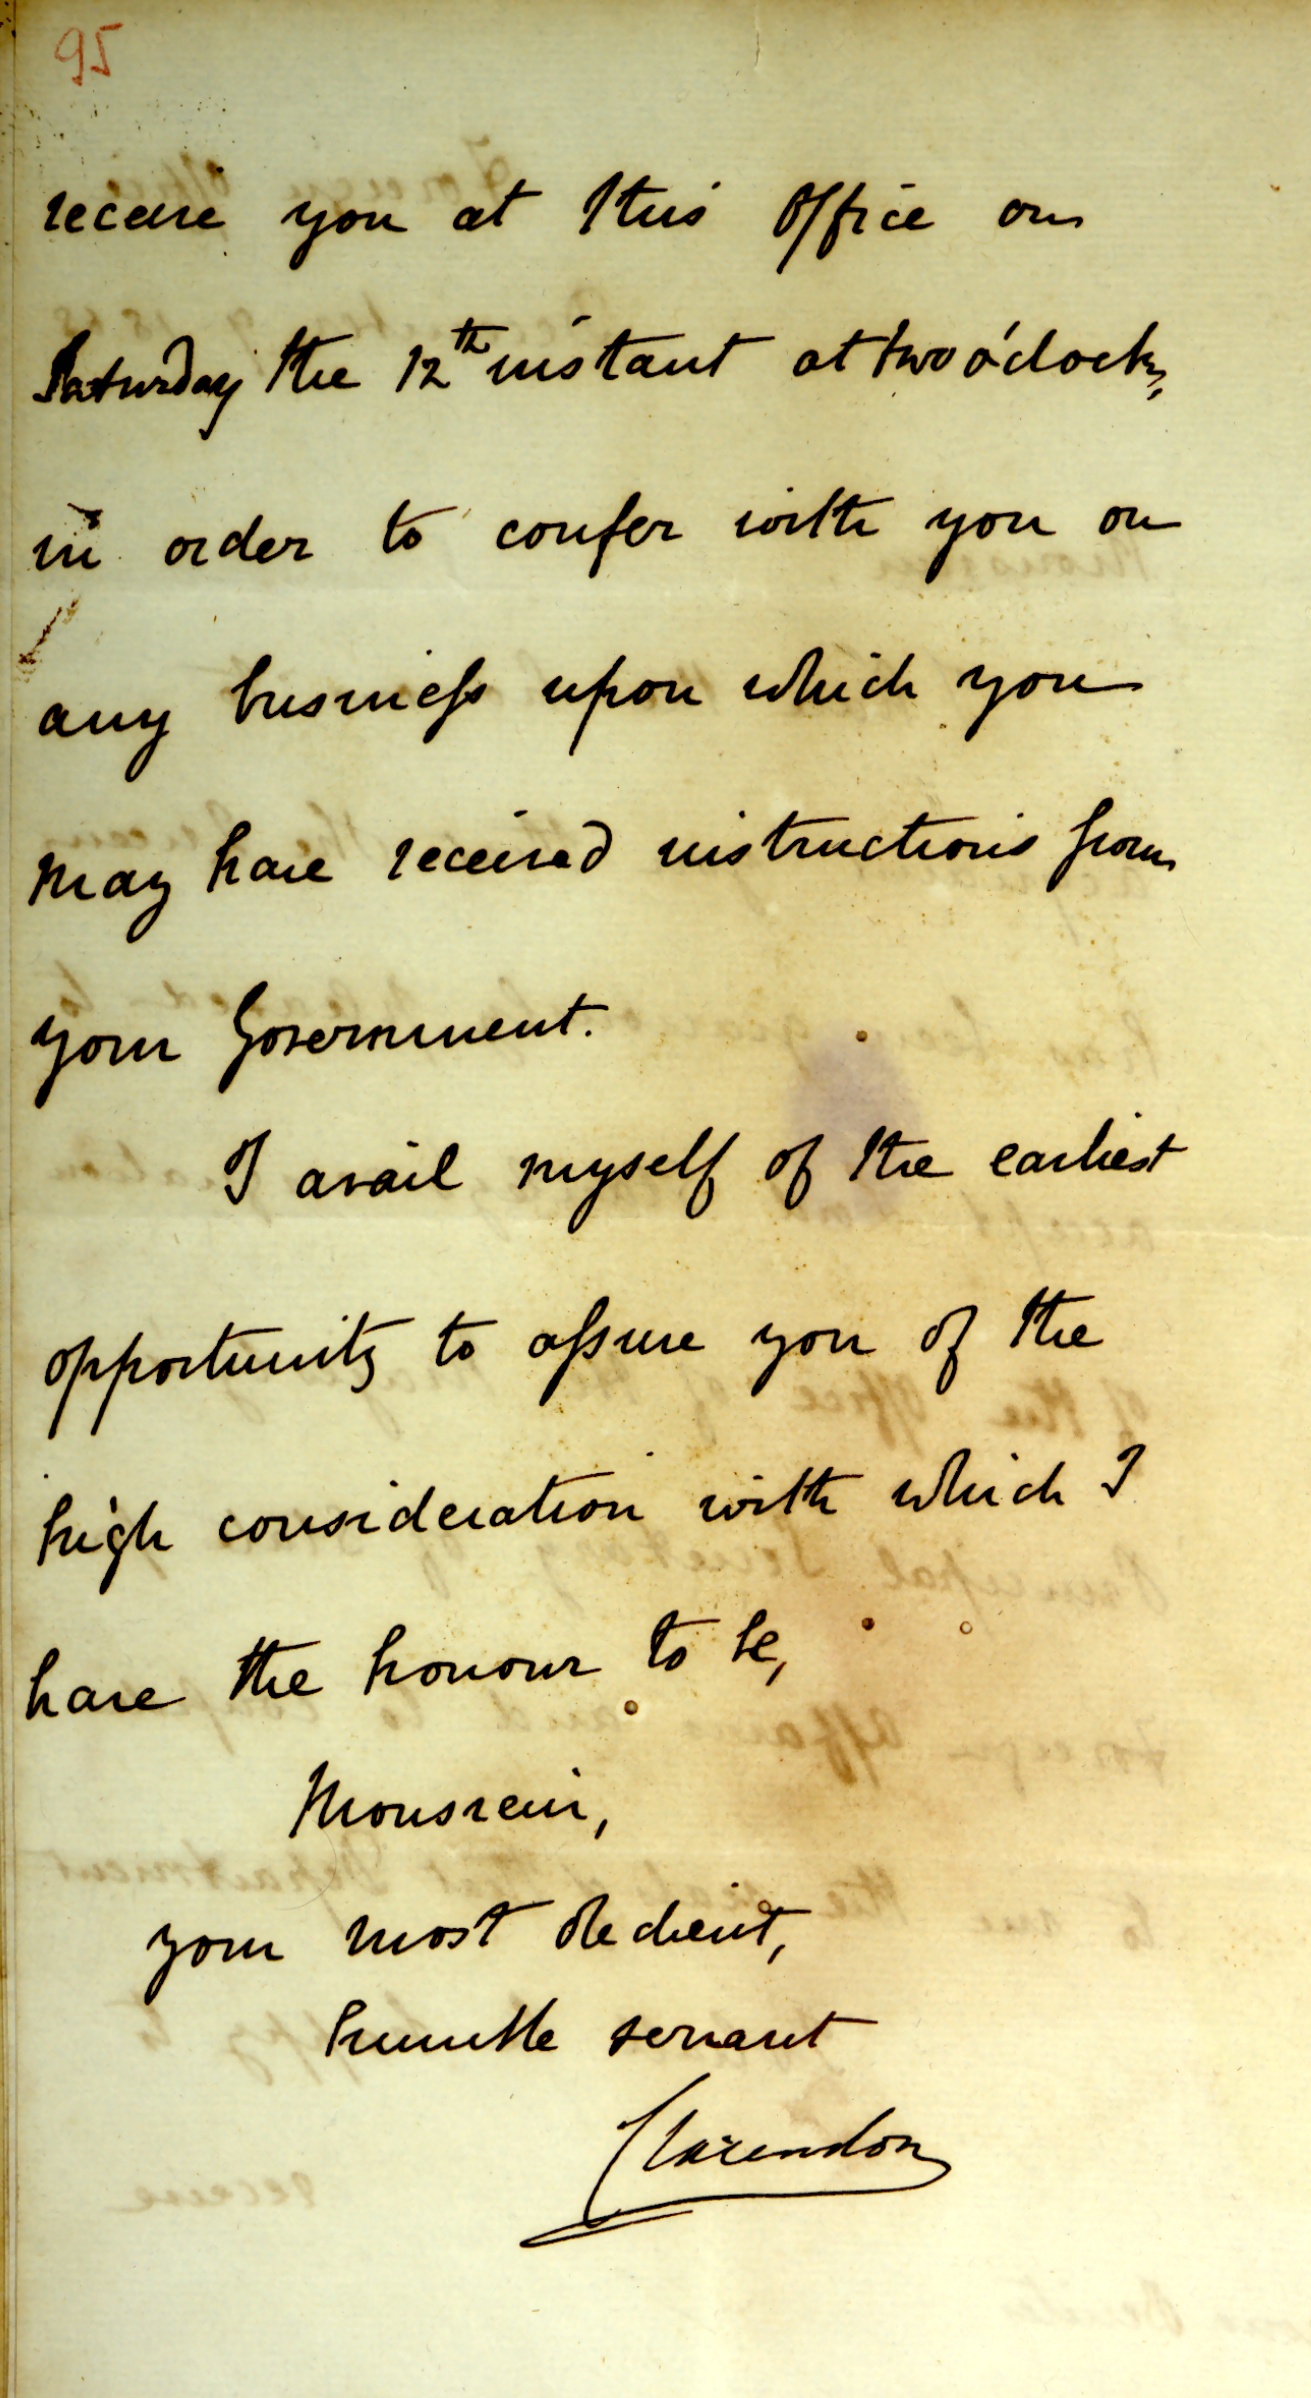 95
receive you at this Office on
Saturday the 12th instant at two o'clock,
in order to confer with you on
any business upon which you
may have received instructions from
your Government.
I avail myself of the earliest
opportunity to assure you of the
high consideration with which I
have the honour to be,
Monsieur,
your most obedient,
humble servant
Clarendon